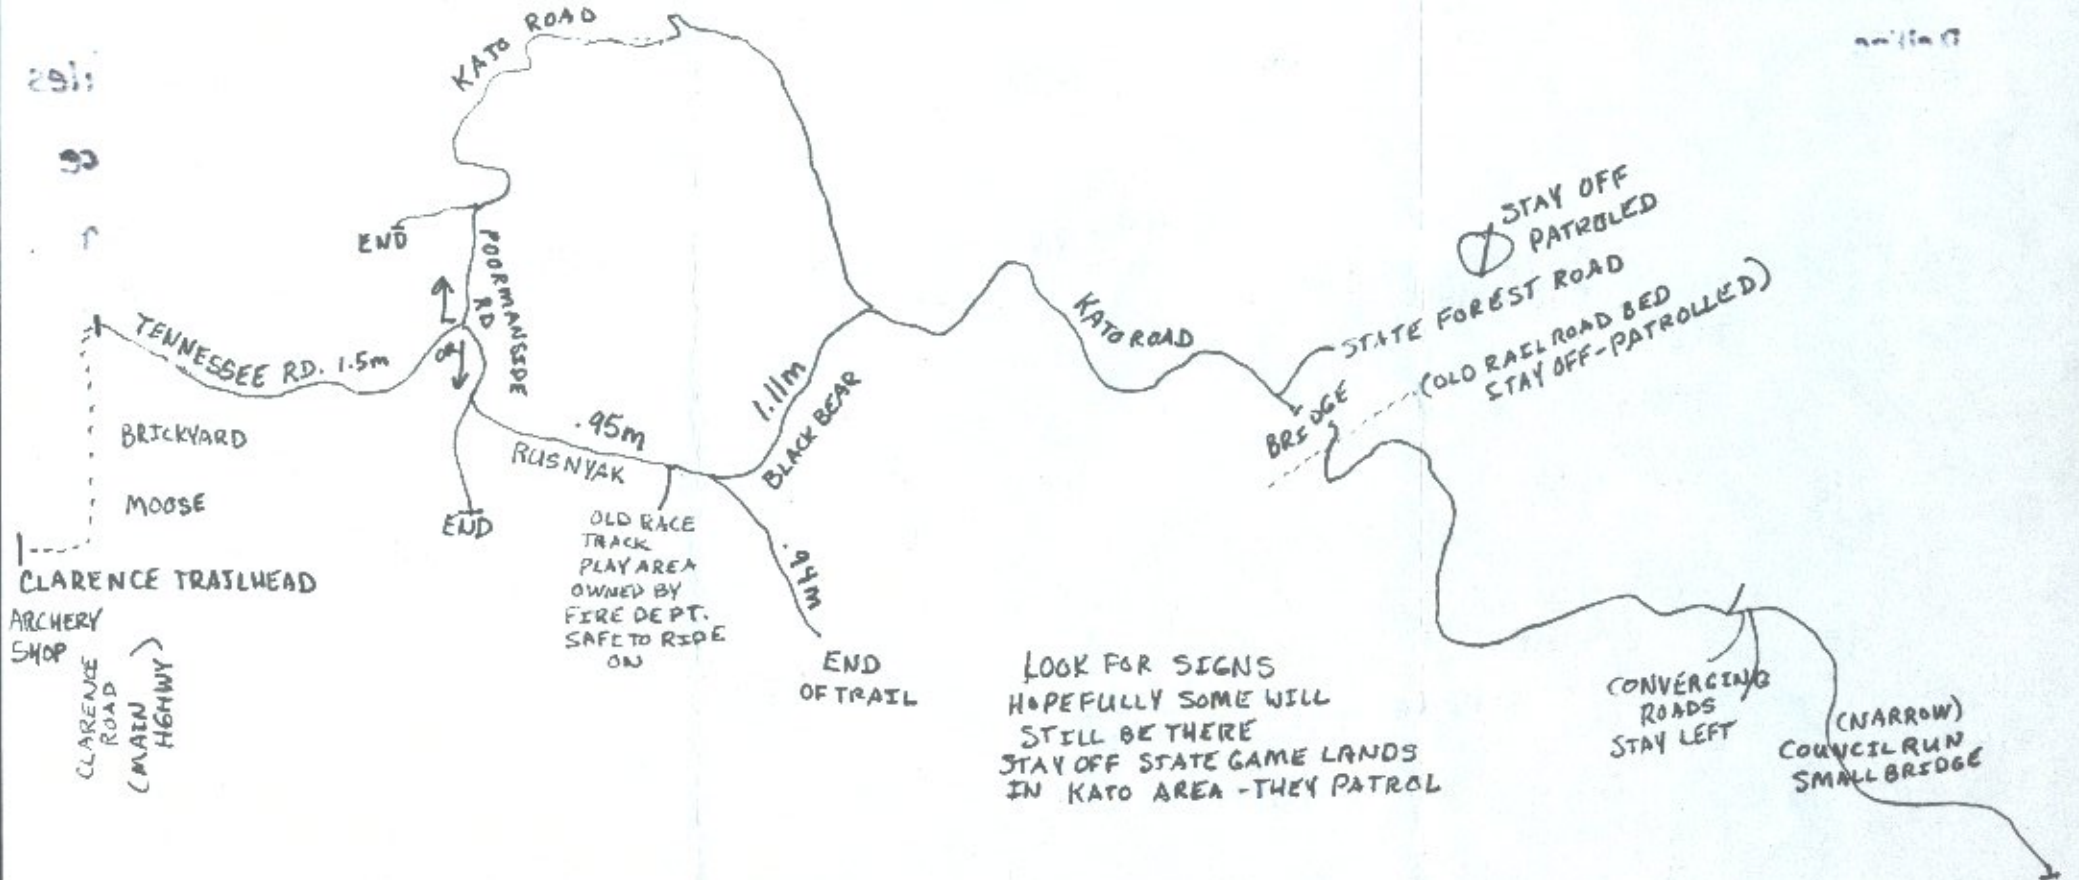 KATO ROAD
END
POORMANSIDE
RD
OR
TENNESSEE RD. 1.5m
BRICKYARD
MOOSE
CLARENCE TRAILHEAD
ARCHERY
SHOP
CLARENCE
ROAD
(MAIN
HGHWY)
END
.95m
RUSNYAK
OLD RACE
TRACK
PLAY AREA
OWNED BY
FIRE DEPT.
SAFE TO RIDE
ON
1.11m
BLACK BEAR
.94m
END
OF TRAIL
KATO ROAD
STAY OFF
PATROLED
STATE FOREST ROAD
(OLD RAILROAD BED
STAY OFF-PATROLLED)
BRIDGE
LOOK FOR SIGNS
HOPEFULLY SOME WILL
STILL BE THERE
STAY OFF STATE GAME LANDS
IN KATO AREA - THEY PATROL
CONVERGING
ROADS
STAY LEFT
(NARROW)
COUNCIL RUN
SMALL BRIDGE